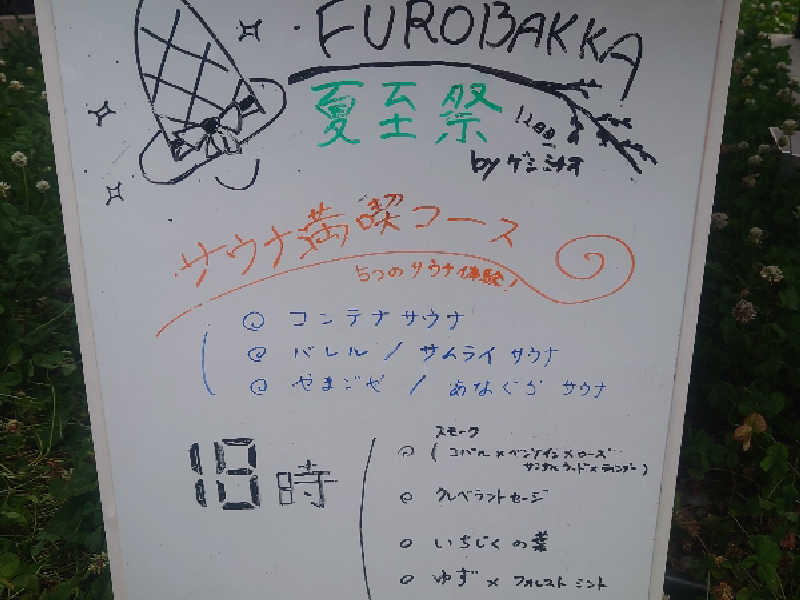 FUROBAKKA
夏至祭
by ゲシミナオ
サウナ満喫コース
5つのサウナ体験!
コンテナサウナ
バレル / サムライサウナ
やまごや / あなぐらサウナ
18時
スモーク
(コパル×ベンゾイン×ローズ
サンダルウッド×ラベンダー)
クレベラントセージ
いちじくの葉
ゆず × フォレストミント